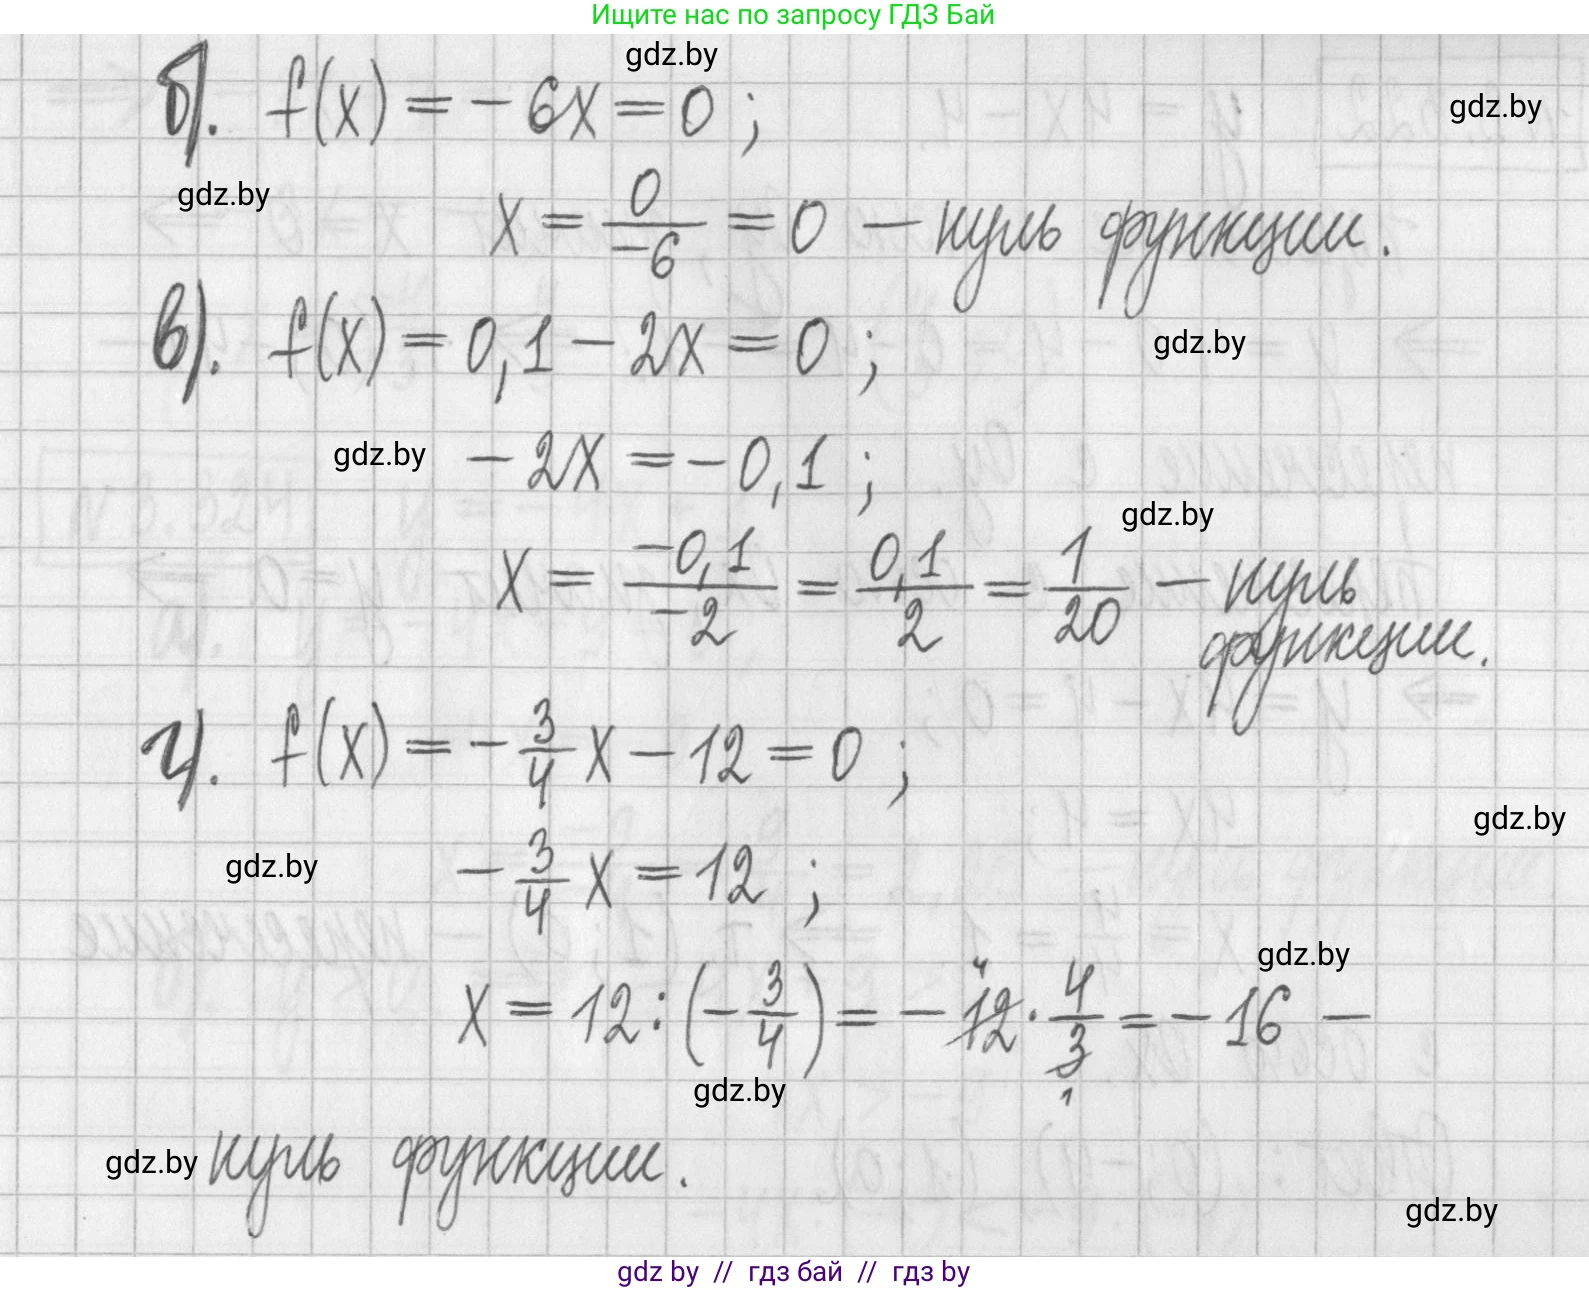 Ищите нас по запросу ГДЗ Бай
gdz.by
б). f(x) = -6x = 0 ;
gdz.by
gdz.by
x = 0/-6 = 0 — нуль функции.
в). f(x) = 0,1 - 2x = 0 ;
gdz.by
gdz.by
-2x = -0,1 ;
gdz.by
x = -0,1/-2 = 0,1/2 = 1/20 — нуль
функции.
г). f(x) = -3/4 x - 12 = 0 ;
gdz.by
gdz.by
-3/4 x = 12 ;
gdz.by
x = 12 : (-3/4) = -12 4 · 4/3 1 = -16 —
gdz.by
gdz.by
нуль функции.
gdz.by
gdz by // гдз бай // гдз by